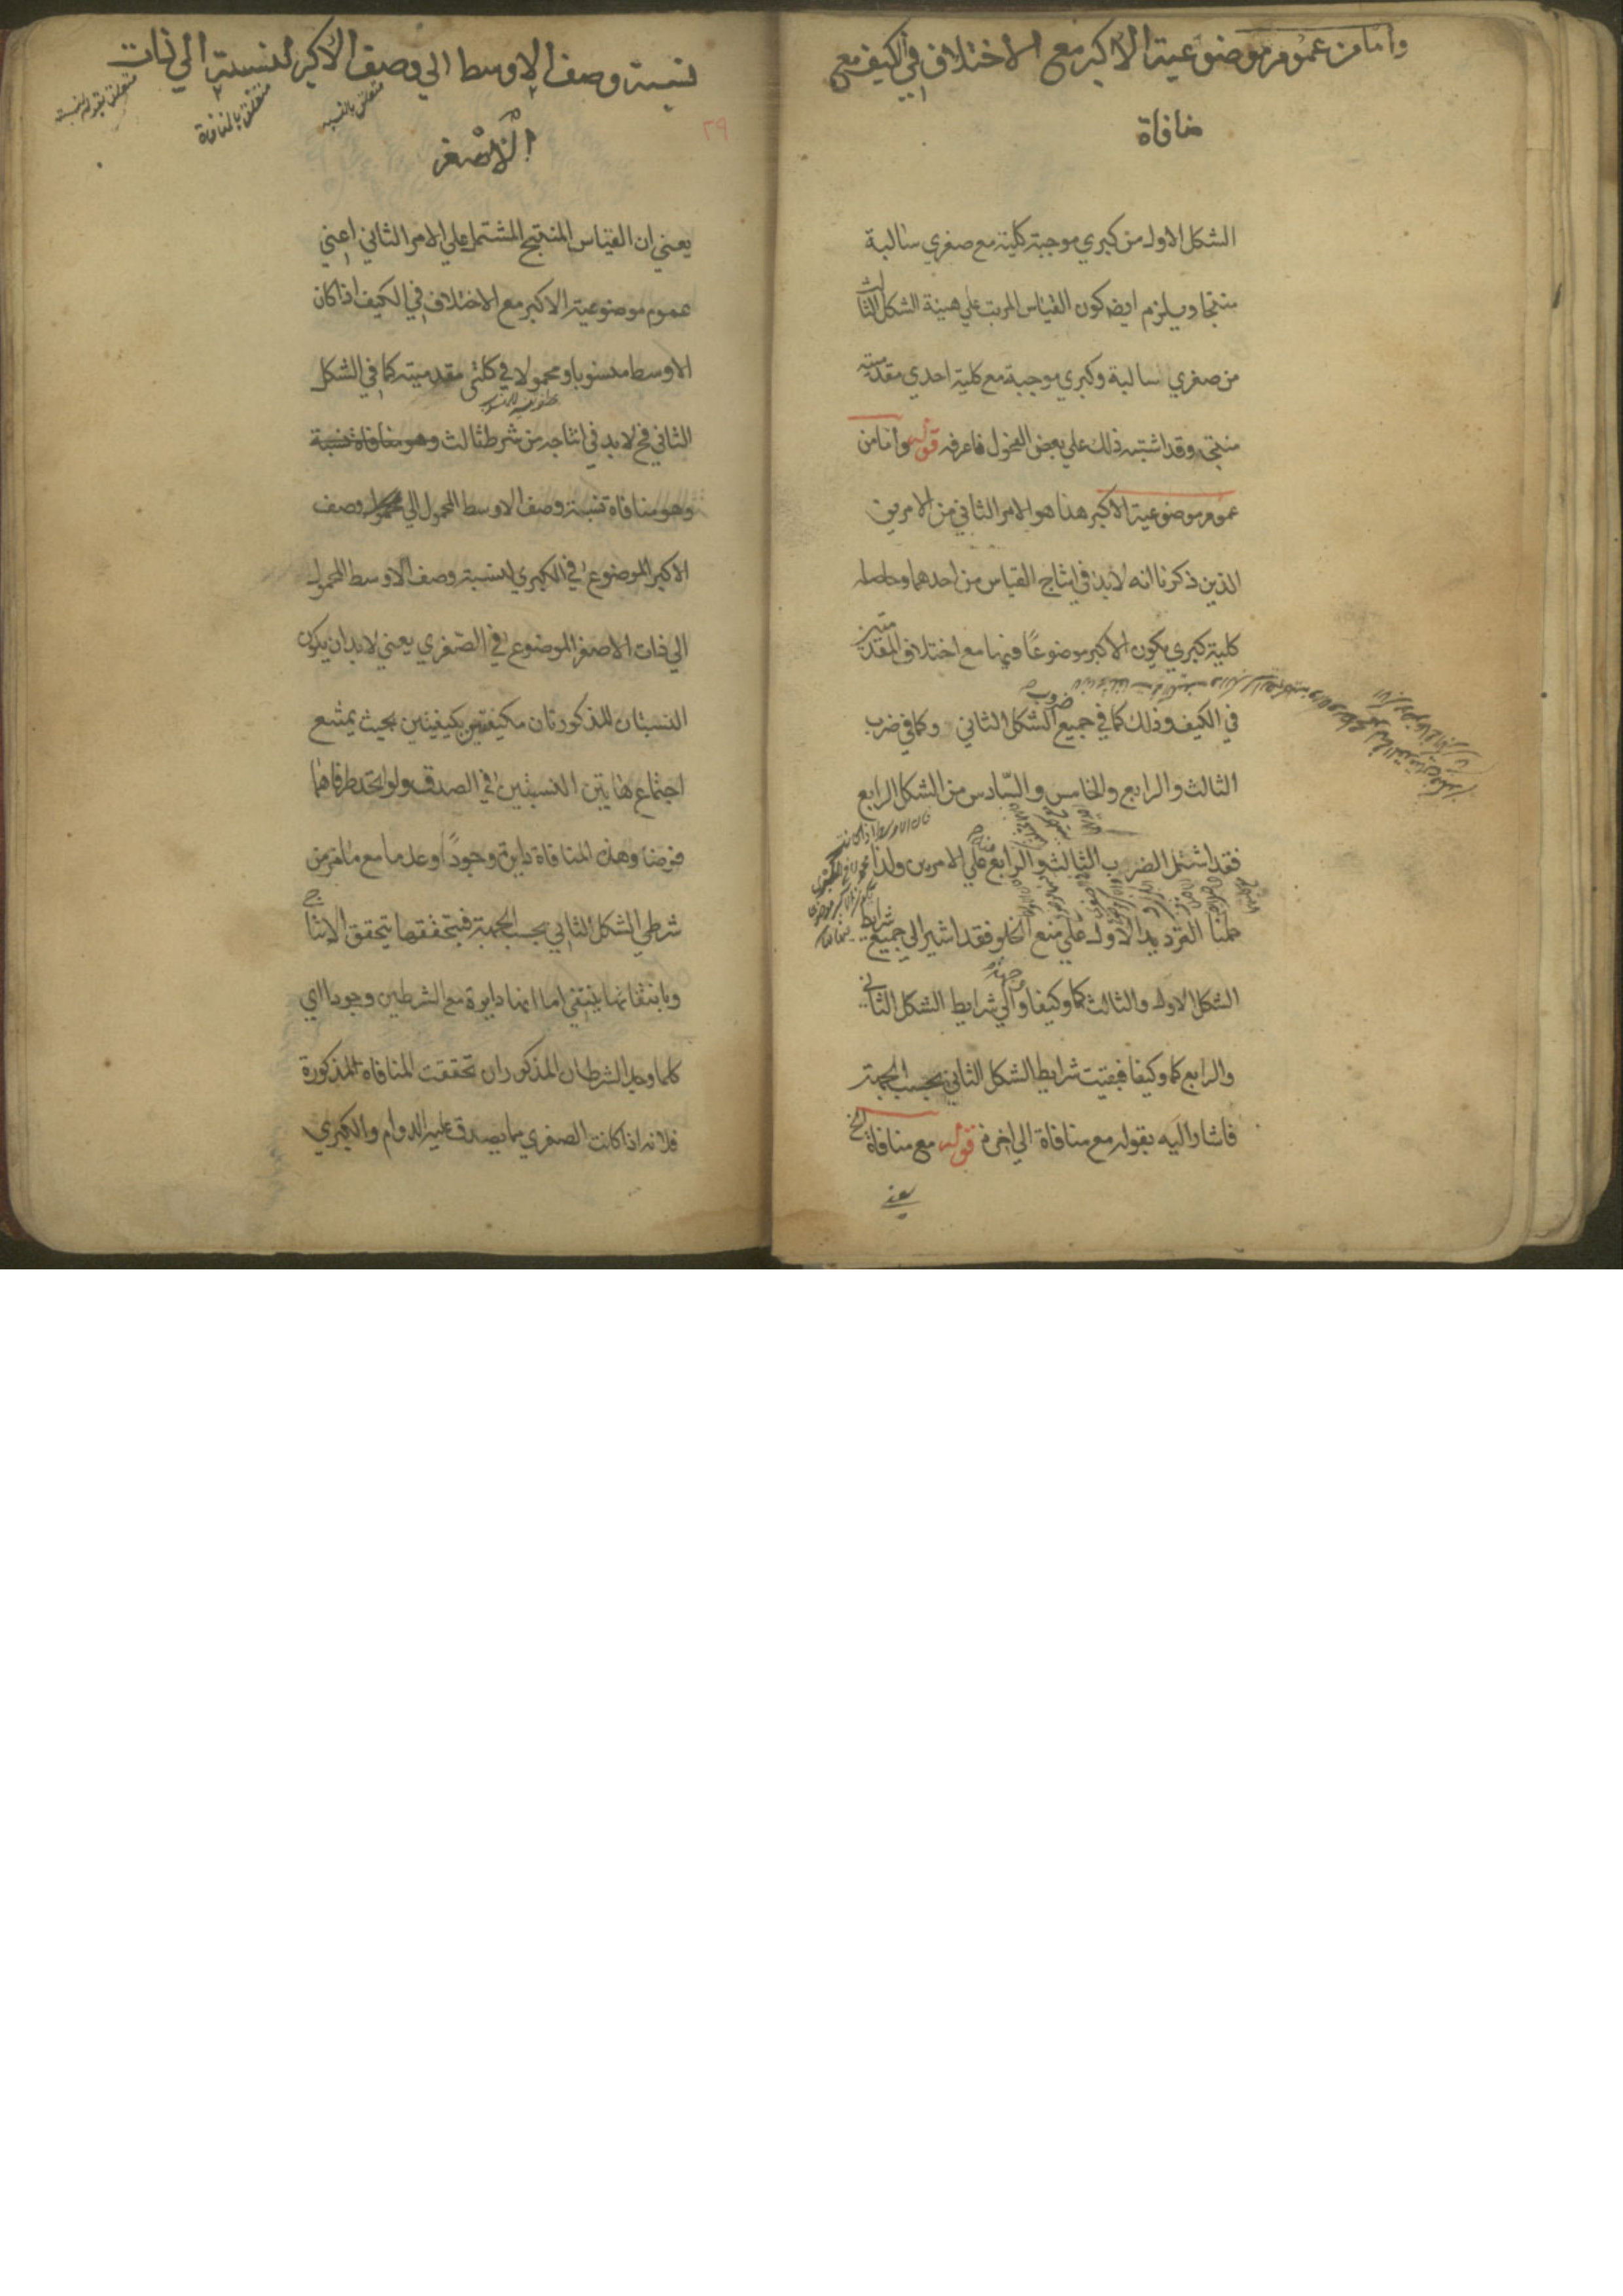 واما من عموم موضوعية الاكبر مع الاختلاف في الكيف مع
منافاة
الشكل الاول من كبري موجبة كلية مع صغري سالبة
منتجا ويلزم ايضا كون القياس المرتب علي هيئة الشكل الثالث
من صغري سالبة وكبري موجبة مع كلية احدي مقدمتيه
منتجا وقد اشتبه ذلك علي بعض الفحول فاعرفه قوله واما من
عموم موضوعية الاكبر هذا هو الامر الثاني من الامرين
الذين ذكرنا انه لابد في انتاج القياس من احدهما وحاصله
كلية كبري يكون الاكبر موضوعًا فيها مع اختلاف المقدمتين
في الكيف وذلك كما في جميع ضروب الشكل الثاني وكما في ضرب
الثالث والرابع والخامس والسّادس من الشكل الرابع
فقد اشتمل الضرب الثالث والرابع منه علي الامرين ولذا
حملنا الترديد الاول علي منع الخلو فقد اشير الي جميع شرايط
الشكل الاول والثالث كما وكيفا وجهة والي شرايط الشكل الثاني
والرابع كما وكيفا فبقيت شرايط الشكل الثاني بحسب الجهة
فاشار اليه بقوله مع منافاة الي اخره قوله مع منافاة الخ
يعني
نسبة وصف الاوسط الي وصف الاكبر لنسبته الي ذات
متعلق بالنسبة
متعلق بالمنافاة
متعلق بقوله لنسبته
الاصغر
٢٩
يعني ان القياس المنتج المشتمل علي الامر الثاني اعني
عموم موضوعية الاكبر مع الاختلاف في الكيف اذا كان
الاوسط منسوبا ومحمولا في كلتي مقدمتيه كما في الشكل
الثاني فح لا بد في انتاجه من شرط ثالث وهو منافاة نسبة
وهو منافاة نسبة وصف الاوسط المحمول الي وصف
الاكبر الموضوع في الكبري لنسبة وصف الاوسط المحمول
الي ذات الاصغر الموضوع في الصغري يعني لابد ان يكون
النسبتان المذكورتان مكيفتين بكيفيتين بحيث يمتنع
اجتماع هاتين النسبتين في الصدق ولو اتحد طرفاهما
فرضا وهذه المنافاة دايرة وجودًا وعدما مع ما مر من
شرطي الشكل الثاني بحسب الجهة فبتحققها يتحقق الانتاج
وبانتفائها ينتفي اما انها دايرة مع الشرطين وجودا اي
كلما وجد الشرطان المذكوران تحققت المنافاة المذكورة
فلانه اذا كانت الصغري مما يصدق عليه الدوام والكبري